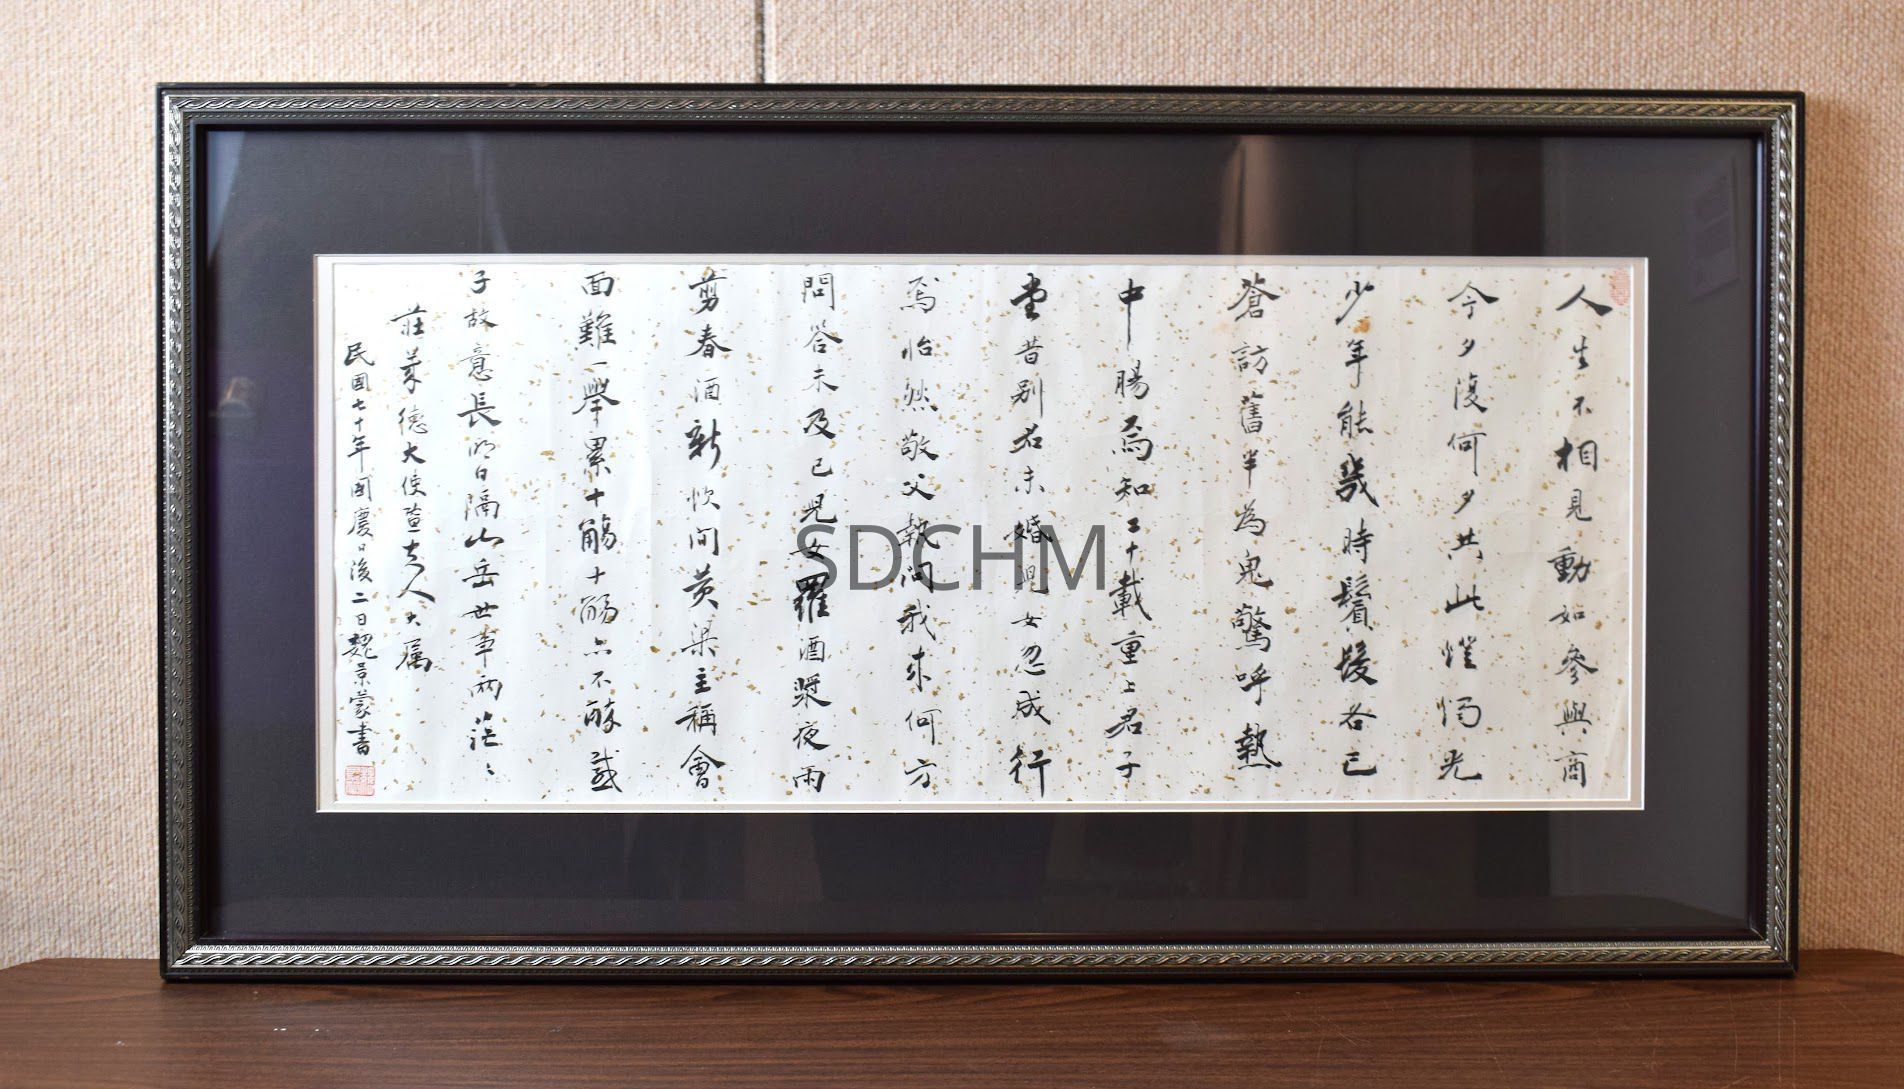 人生不相見動如參與商
今夕復何夕共此燈燭光
少年能幾時鬢髮各已
蒼訪舊半為鬼驚呼熱
中腸焉知二十載重上君子
堂昔别君未婚兒女忽成行
焉怡然敬父執問我來何方
問答未及已兒女羅酒漿夜雨
剪春酒新炊間黃梁主稱會
面難一舉累十觴十觴亦不醉感
子故意長明日隔山岳世事兩茫〻
莊萊德大使暨夫人大属
民國七十年國慶日後二日魏景蒙書
SDCHM